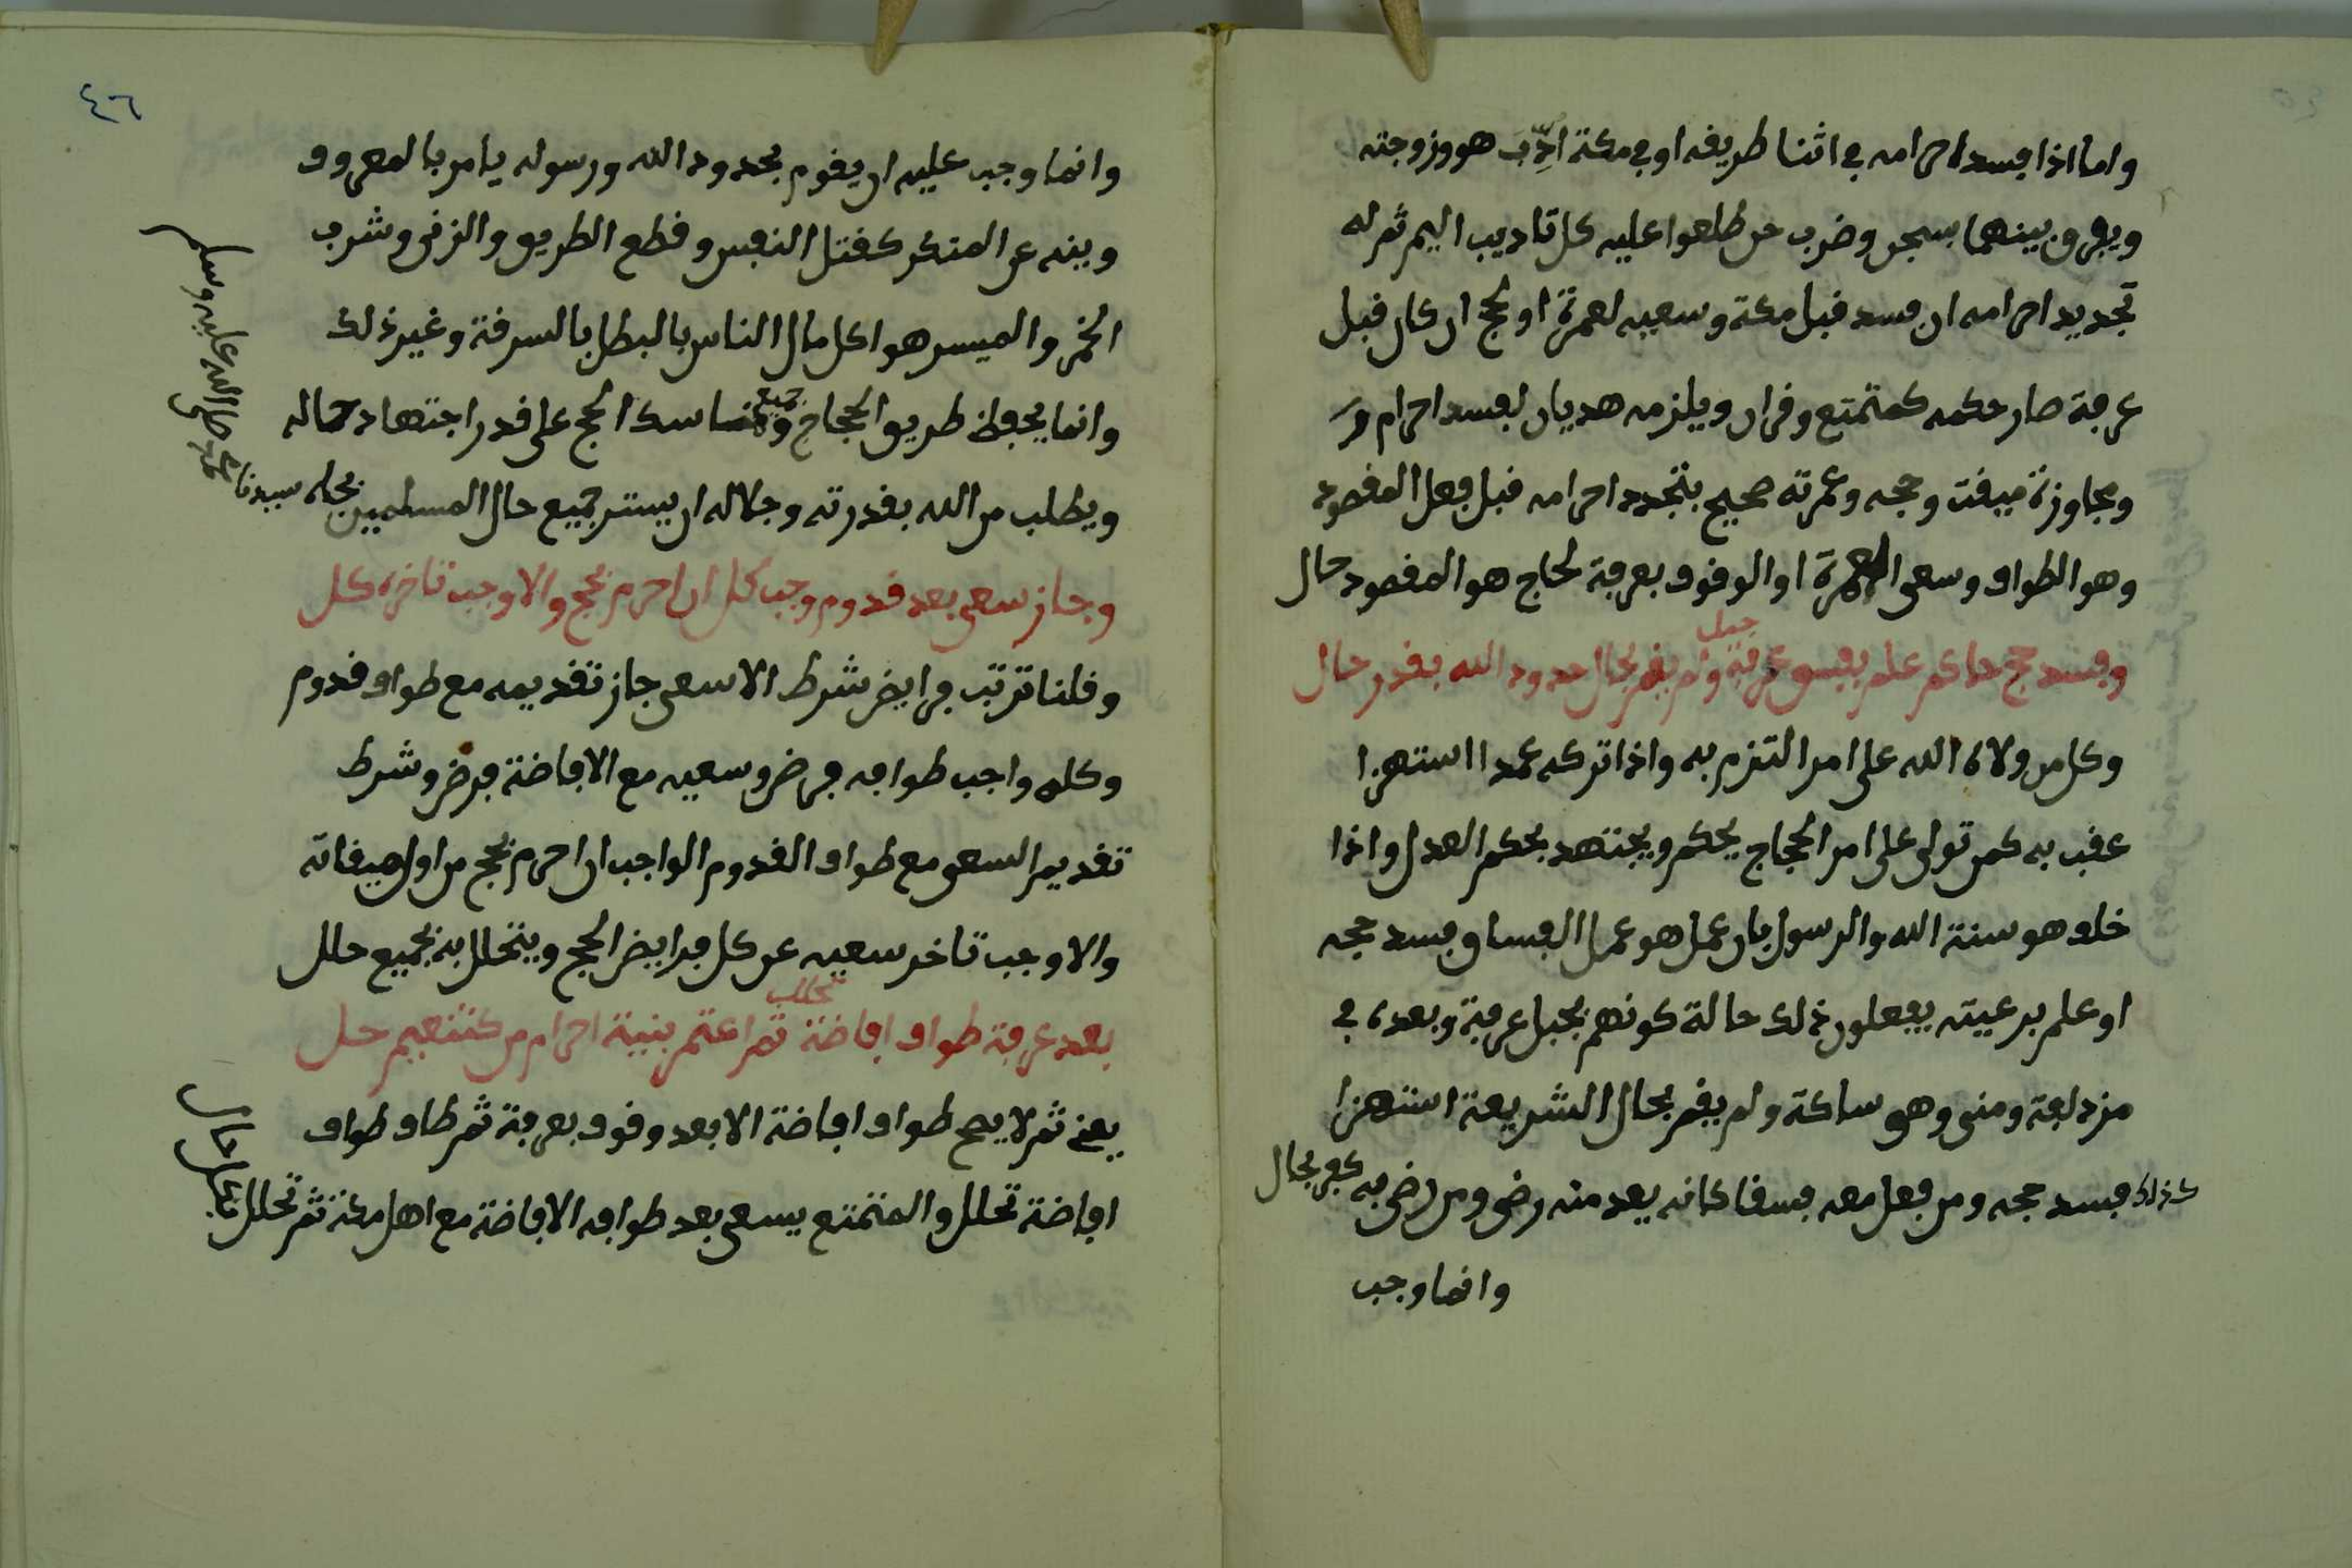 واما اذا فسد احرامه في اثنا طريقه او في مكة ادّب هو وزوجته
ويفرق بينهما بسجن وضرب من طلعوا عليه كل تاديب اليم ثم له
تجديد احرامه ان فسد قبل مكة وسعيه لعمرة او لحج ان كان قبل
عرفة صار حكمه كمتمتع وقران ويلزمه هديان لفسد احرام
ومجاوزة ميقت وحجه وعمرته صحيح بتجدد احرامه قبل فعل المقصود
وهو الطواف وسعى العمرة او الوقوف بعرفة لحاج هو المقصود حال
وفسد حج حاكم علم بفسق جبل عرفة ولم يقم بحال حدود الله بقدر حال
وكل من ولاه الله على امر التزم به واذا تركه عمدا استهزا
عقب به كمن تولى على امر الحجاج يحكم ويجتهد بحكم العدل واذا
خلف هو سنة الله والرسول بان عمل هو عمل الفساق فسد حجه
او علم برعيته يفعلون ذلك حالة كونهم بجبل عرفة وبعده في
مزدلفة ومنى وهو ساكة ولم يقم بحال الشريعة استهزا
كذلك فسد حجه ومن فعل معه فسقا كانه يعد منه رضى ومن رضى به كفر بحال
وانما وجب
٤٦
وانما وجب عليه ان يقوم بحدود الله ورسوله يامر بالمعروف
وينه عن المنكر كقتل النفس وقطع الطريق والزنى وشرب
الخمر والميسر هو اكل مال الناس بالبطل بالسرقة وغير ذلك
وانما يحفظ طريق الحجاج وجميع مناسك الحج على قدر اجتهاد حاله
ويطلب من الله بقدرته وجلاله ان يستر جميع حال المسلمين بجاه سيدنا
محمد صلى الله عليه وسلم
وجاز سعي بعد قدوم وجب كل ان احرم بحج والا وجب تاخره كل
وقلنا ترتب فرايض شرط الا سعي جاز تقديمه مع طواف قدوم
وكله واجب طوافه فرض وسعيه مع الافاضة فرض وشرط
تقديم السعي مع طواف القدوم الواجب ان احرم بحج من اول ميقاته
والا وجب تاخر سعيه عن كل فرايض الحج ويتحلل به بجميع حلل
بعد عرفة طواف افاضة تحلل ثم اعتمر بنية احرام من كتنعيم حل
يعني ثم لا يصح طواف افاضة الا بعد وقوف بعرفة ثم طاف طواف
افاضة تحلل والمتمتع يسعى بعد طوافه الافاضة مع اهل مكة ثم تحلل